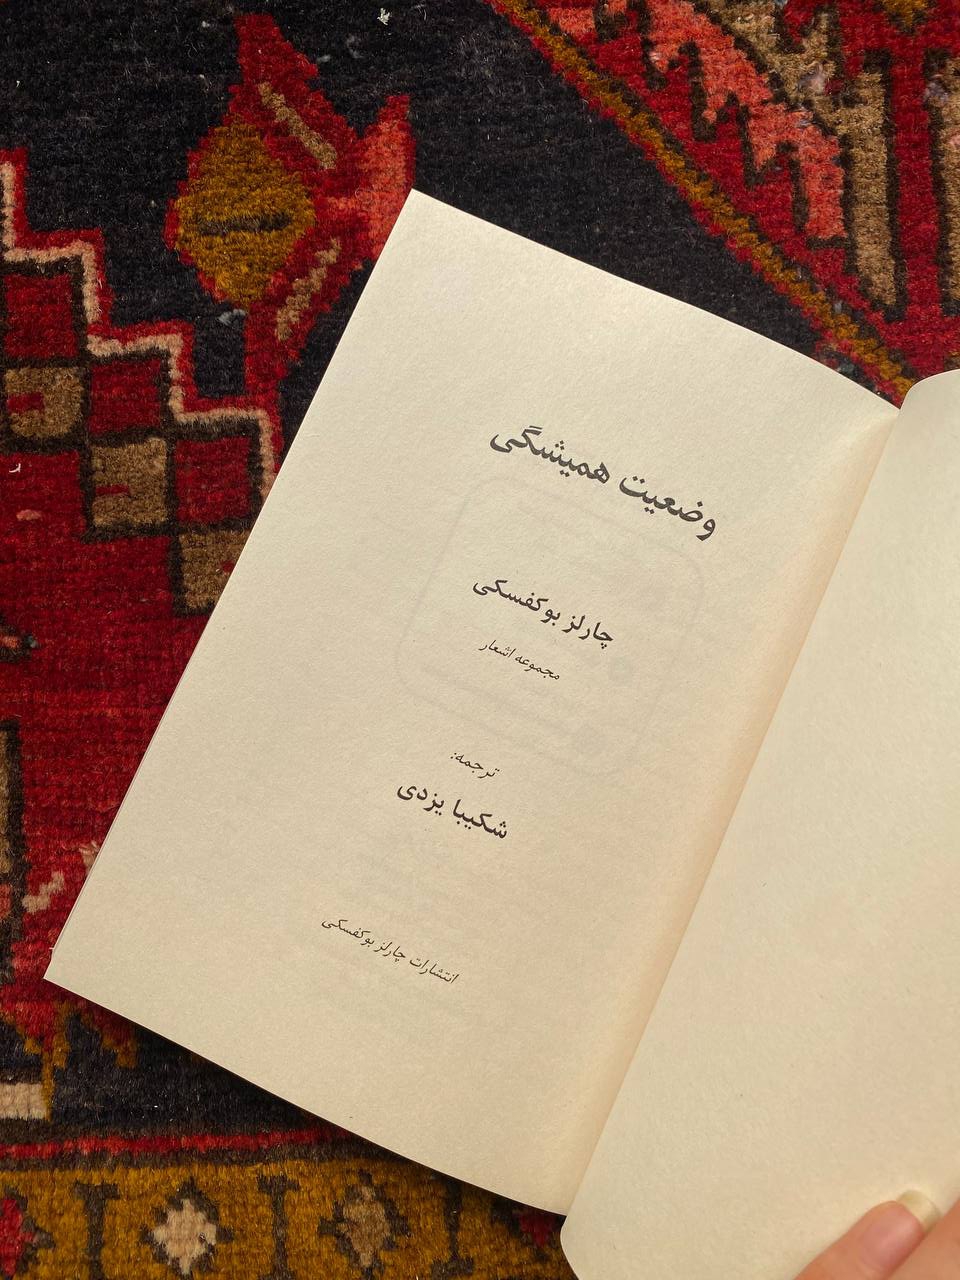 وضعیت همیشگی
چارلز بوکفسکی
مجموعه اشعار
ترجمه:
شکیبا یزدی
انتشارات چارلز بوکفسکی